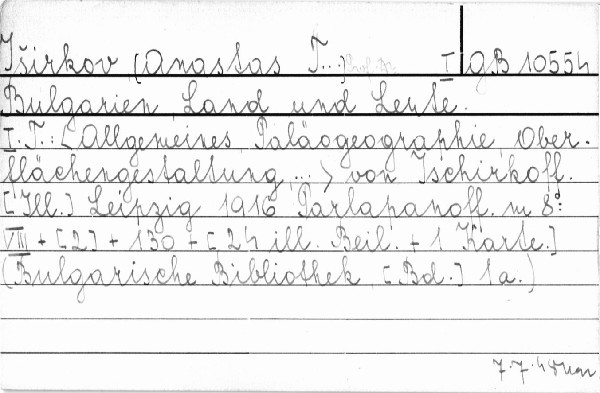 Iširkov (Anastas T...) I GB 10554
Bulgarien, Land und Leute.
I. T.: <Allgemeines, Paläogeographie, Ober-
flächengestaltung ...> von Ischirkoff.
[Ill.] Leipzig 1916 Parlapanoff. m. 8°:
VIII + [2] + 130 + [24 ill. Beil. + 1 Karte.]
(Bulgarische Bibliothek [Bd.] 1a.)
7.7.48